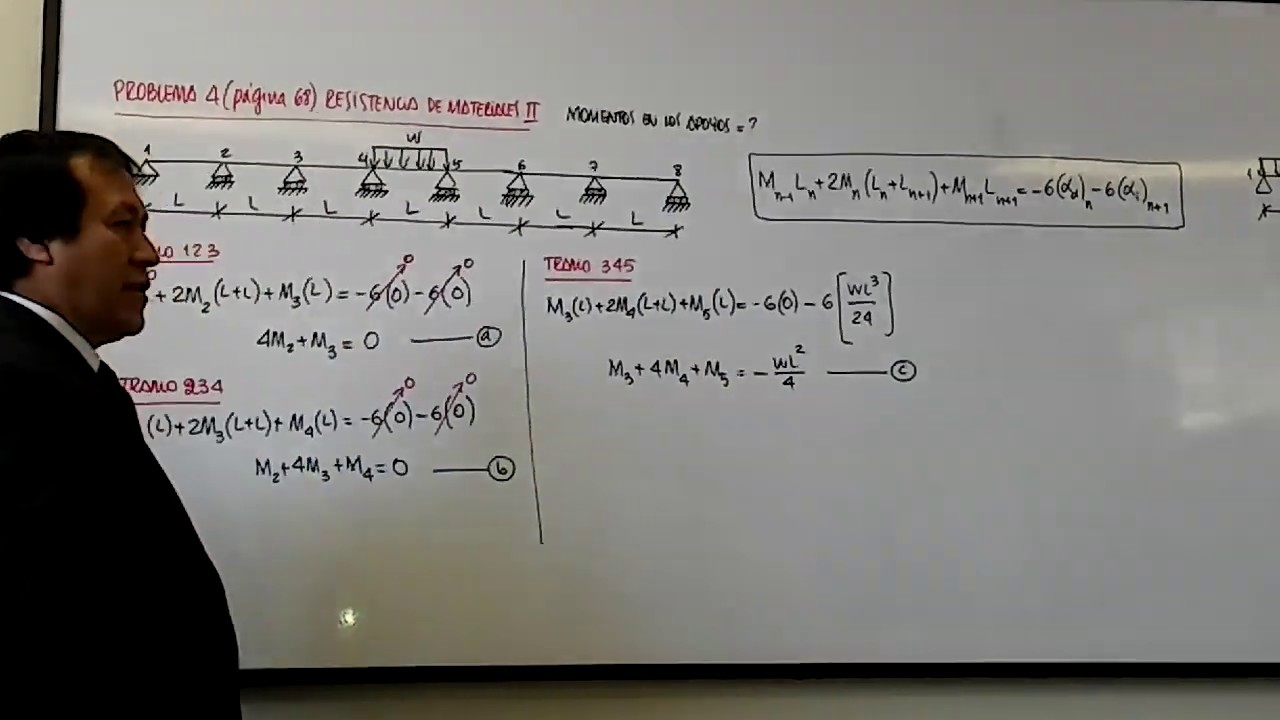 PROBLEMA 4 (página 68) RESISTENCIA DE MATERIALES II
MOMENTOS EN LOS APOYOS = ?
W
1 2 3 4 5 6 7 8
L L L L L L L
M_{n-1} L_n + 2M_n (L_n + L_{n+1}) + M_{n+1} L_{n+1} = -6(α_d)_n - 6(α_i)_{n+1}
123
0 0 0
+ 2M_2 (L+L) + M_3 (L) = -6(0) - 6(0)
4M_2 + M_3 = 0 ——— (a)
TRAMO 234
0 0
(L) + 2M_3 (L+L) + M_4 (L) = -6(0) - 6(0)
M_2 + 4M_3 + M_4 = 0 ——— (b)
TRAMO 345
M_3 (L) + 2M_4 (L+L) + M_5 (L) = -6(0) - 6[WL^3/24]
M_3 + 4M_4 + M_5 = -WL^2/4 ——— (c)